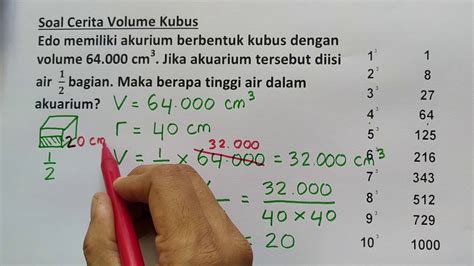 Soal Cerita Volume Kubus
Edo memiliki akurium berbentuk kubus dengan
volume 64.000 cm³. Jika akuarium tersebut diisi
air 1/2 bagian. Maka berapa tinggi air dalam
akuarium?
V = 64.000 cm³
r = 40 cm
20 cm
1/2
32.000
V = 1/ × 64.000 = 32.000 cm³
= 32.000 / 40 × 40
= 20
1³ 1
2³ 8
3³ 27
4³ 64
5³ 125
6³ 216
7³ 343
8³ 512
9³ 729
10³ 1000